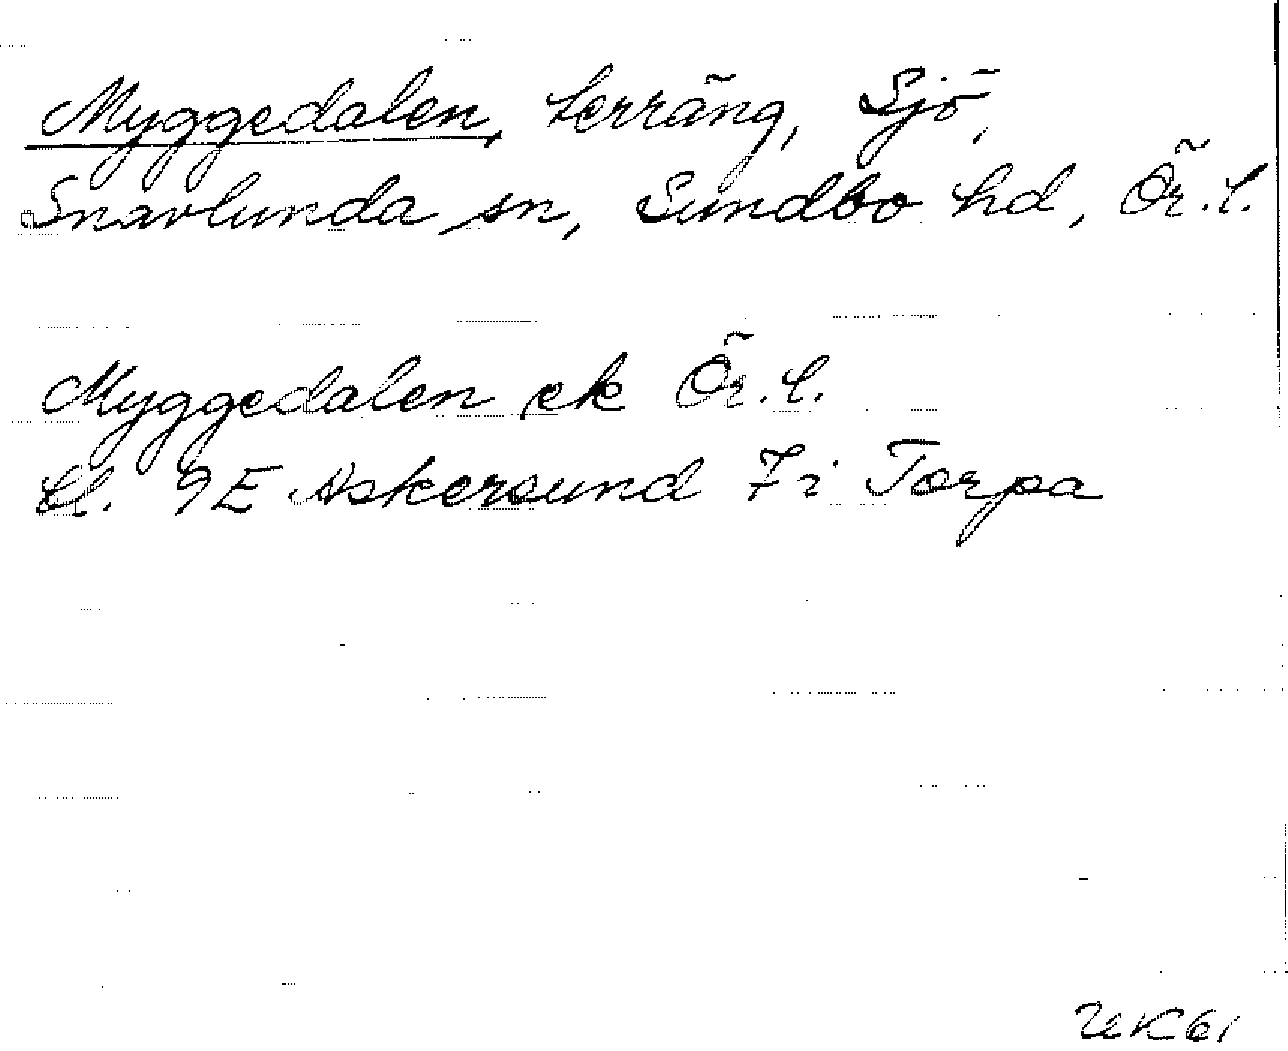 Myggedalen, terräng, Sjö,
Snavlunda sn, Sundbo hd, Ör. l.
Myggedalen ek Ör. l.
bl. 9E Askersund 7i Torpa
UK61